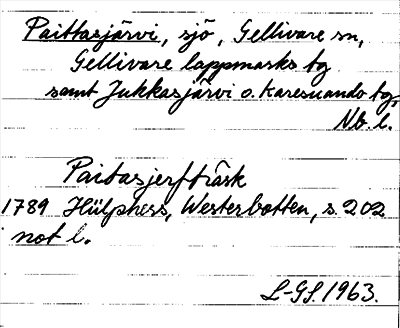 Paittasjärvi, sjö, Gellivare sn,
Gellivare lappmarks tg
samt Jukkasjärvi o. Karesuando tg,
Nb. l.
Paitasjerfträsk
1789 Hülphers, Westerbotten, s. 202
not l.
L-GS. 1963.